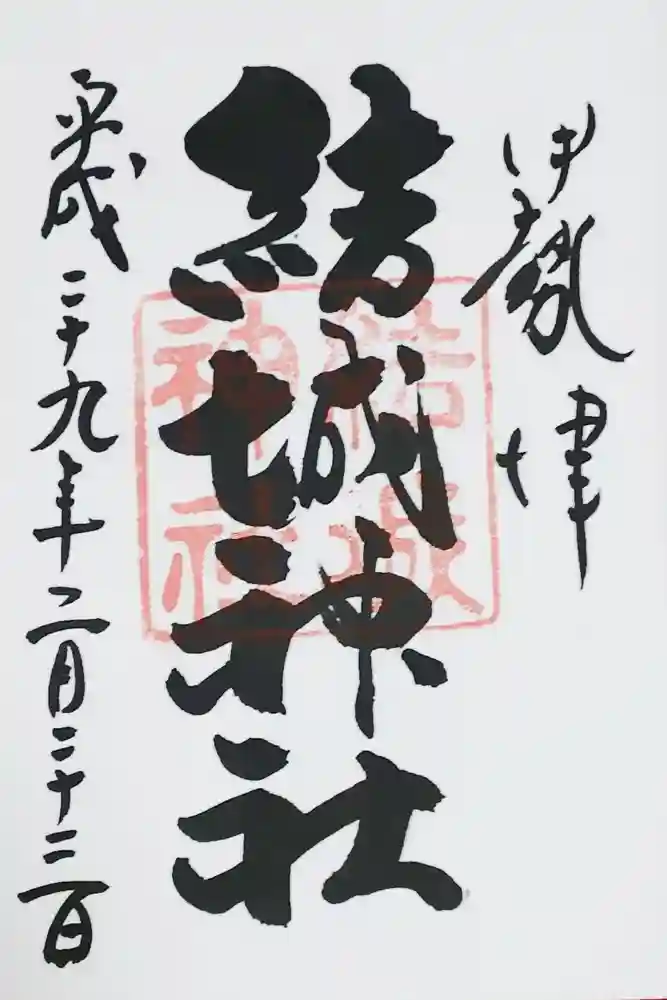 伊勢 津
結城神社
平成二十九年二月二十三日
結城
神社